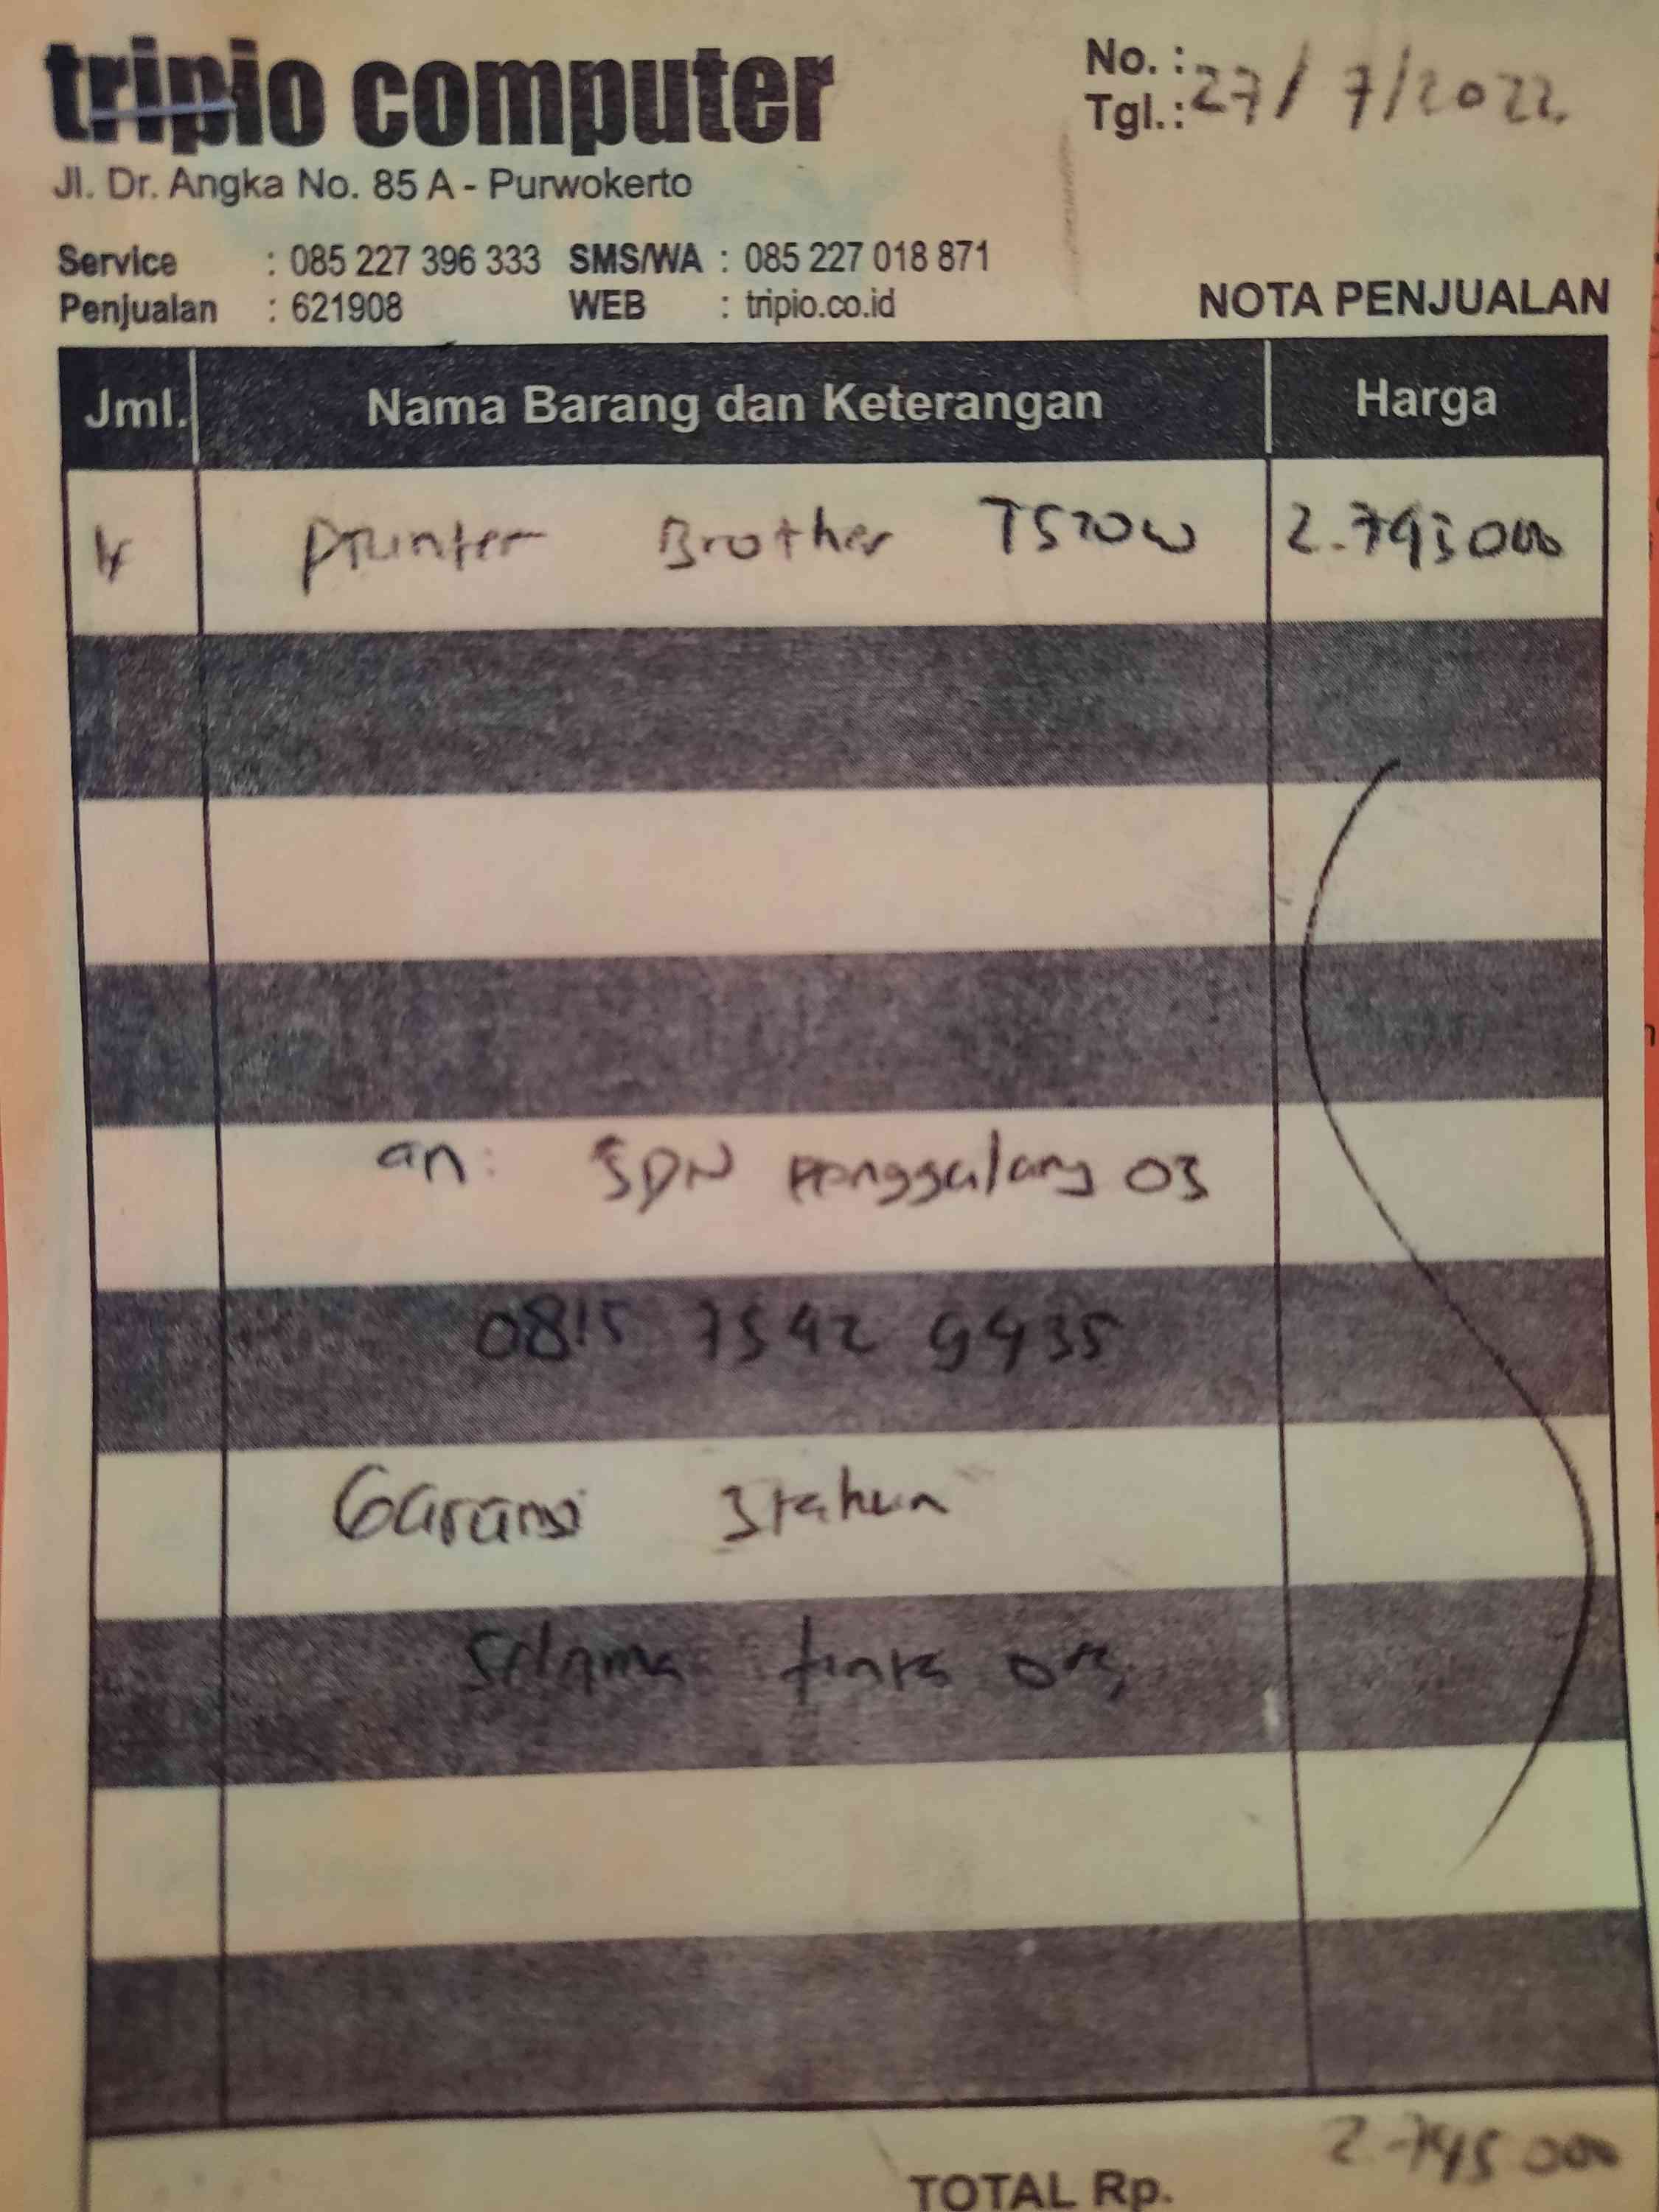 tripio computer
No. :
Tgl.: 27/7/2022
Jl. Dr. Angka No. 85 A - Purwokerto
Service : 085 227 396 333 SMS/WA : 085 227 018 871
Penjualan : 621908 WEB : tripio.co.id
NOTA PENJUALAN
Jml. Nama Barang dan Keterangan Harga
Printer Brother T520W 2.795000
an: SDN Penggalang 03
0815 7542 9435
Garansi 3 tahun
Selama tinta ori
TOTAL Rp. 2.795 000